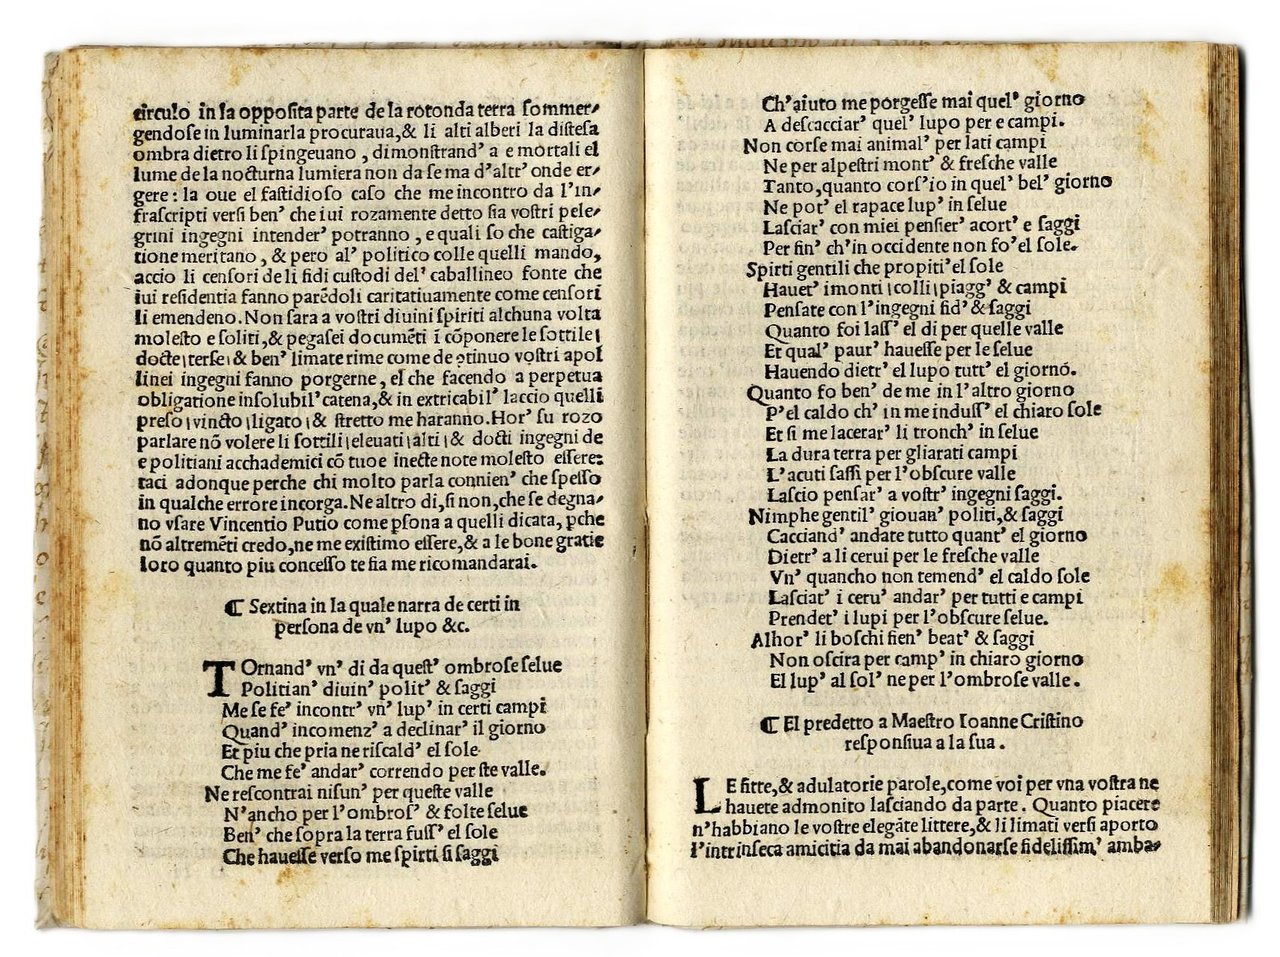 circulo in la opposita parte de la rotonda terra ſommer-
gendoſe in luminarla procuraua,& li alti alberi la diſteſa
ombra dietro li ſpingeuano , dimonſtrand' a e mortali el
lume de la nocturna lumiera non da ſe ma d'altr' onde er-
gere : la oue el faſtidioſo caſo che me incontro da l'in-
fraſcripti verſi ben' che iui rozamente detto ſia voſtri pele-
grini ingegni intender' potranno , e quali ſo che caſtiga-
tione meritano , & pero al' politico colle quelli mando,
accio li cenſori de li fidi cuſtodi del' caballineo fonte che
iui reſidentia fanno parēdoli caritatiuamente come cenſori
li emendeno. Non ſara a voſtri diuini ſpiriti alchuna volta
moleſto e ſoliti,& pegaſei documēti ī cōponere le ſottile\
docte\terſe\& ben' limate rime come de ꝯtinuo voſtri apol
linei ingegni fanno porgerne, el che facendo a perpetua
obligatione inſolubil' catena,& in extricabil' laccio quelli
preſo\vincto\ligato\& ſtretto me haranno.Hor' ſu rozo
parlare nō volere li ſottili\eleuati\alti\& docti ingegni de
e politiani acchademici cō tuoe inecte note moleſto eſſere:
taci adonque perche chi molto parla connien' che ſpeſſo
in qualche errore incorga. Ne altro di,ſi non,che ſe degna-
no vſare Vincentio Putio come pſona a quelli dicata, ꝑche
nō altremēti credo,ne me exiſtimo eſſere,& a le bone gratie
loro quanto piu conceſſo te ſia me ricomandarai.
¶ Sextina in la quale narra de certi in
perſona de vn' lupo &c.
TOrnand' vn' di da queſt' ombroſe ſelue
Politian' diuin' polit' & ſaggi
Me ſe fe' incontr' vn' lup' in certi campi
Quand' incomenz' a declinar' il giorno
Et piu che pria ne riſcald' el ſole
Che me fe' andar' correndo per ſte valle.
Ne reſcontrai niſun' per queſte valle
N'ancho per l'ombroſ' & folte ſelue
Ben' che ſopra la terra fuſſ' el ſole
Che haueſſe verſo me ſpirti ſi ſaggi
Ch'aiuto me porgeſſe mai quel' giorno
A deſcacciar' quel' lupo per e campi.
Non corſe mai animal' per lati campi
Ne per alpeſtri mont' & freſche valle
Tanto,quanto corſ'io in quel' bel' giorno
Ne pot' el rapace lup' in ſelue
Laſciar' con miei penſier' acort' e ſaggi
Per fin' ch'in occidente non fo'el ſole.
Spirti gentili che propiti'el ſole
Hauet' i monti\colli\piagg' & campi
Penſate con l'ingegni fid' & ſaggi
Quanto foi laſſ' el di per quelle valle
Et qual' paur' haueſſe per le ſelue
Hauendo dietr' el lupo tutt' el giornō.
Quanto fo ben' de me in l'altro giorno
P'el caldo ch' in me induſſ' el chiaro ſole
Et ſi me lacerar' li tronch' in ſelue
La dura terra per gliarati campi
L'acuti ſaſſi per l'obſcure valle
Laſcio penſar' a voſtr' ingegni ſaggi.
Nimphe gentil' giouan' politi,& ſaggi
Cacciand' andate tutto quant' el giorno
Dietr' a li cerui per le freſche valle
Vn' quancho non temend' el caldo ſole
Laſciat' i ceru' andar' per tutti e campi
Prendet' i lupi per l'obſcure ſelue.
Alhor' li boſchi fien' beat' & ſaggi
Non oſcira per camp' in chiaro giorno
El lup' al ſol' ne per l'ombroſe valle.
¶ El predetto a Maeſtro Ioanne Criſtino
reſponſiua a la ſua.
LE fitte,& adulatorie parole,come voi per vna voſtra ne
hauete admonito laſciando da parte. Quanto piacere
n'habbiano le voſtre elegāte littere,& li limati verſi aporto
l'intrinſeca amicitia da mai abandonarſe fideliſſim' amba-